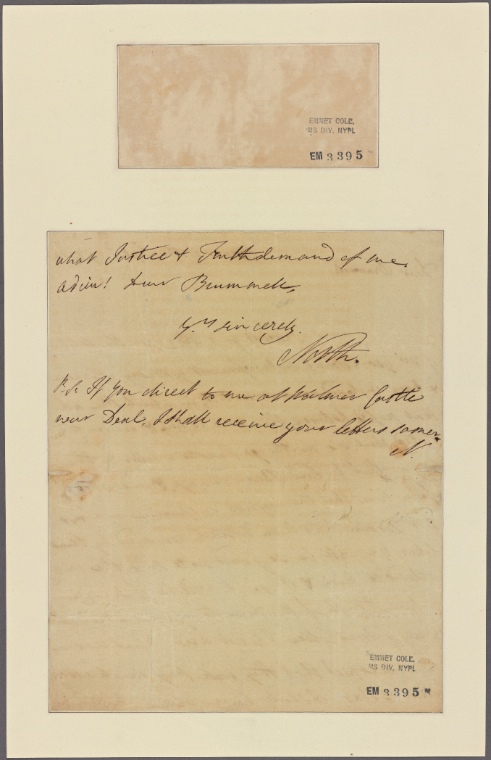 EMMET COLL.
MS DIV. NYPL
EM 3395
what Justice & Truth demand of me.
adieu! dear Brummell,
yrs sincerely.
North.
P.S. If you direct to me at Walmer Castle
near Deal, I shall receive your letters sooner.
N.
EMMET COLL.
MS DIV. NYPL
EM 3395